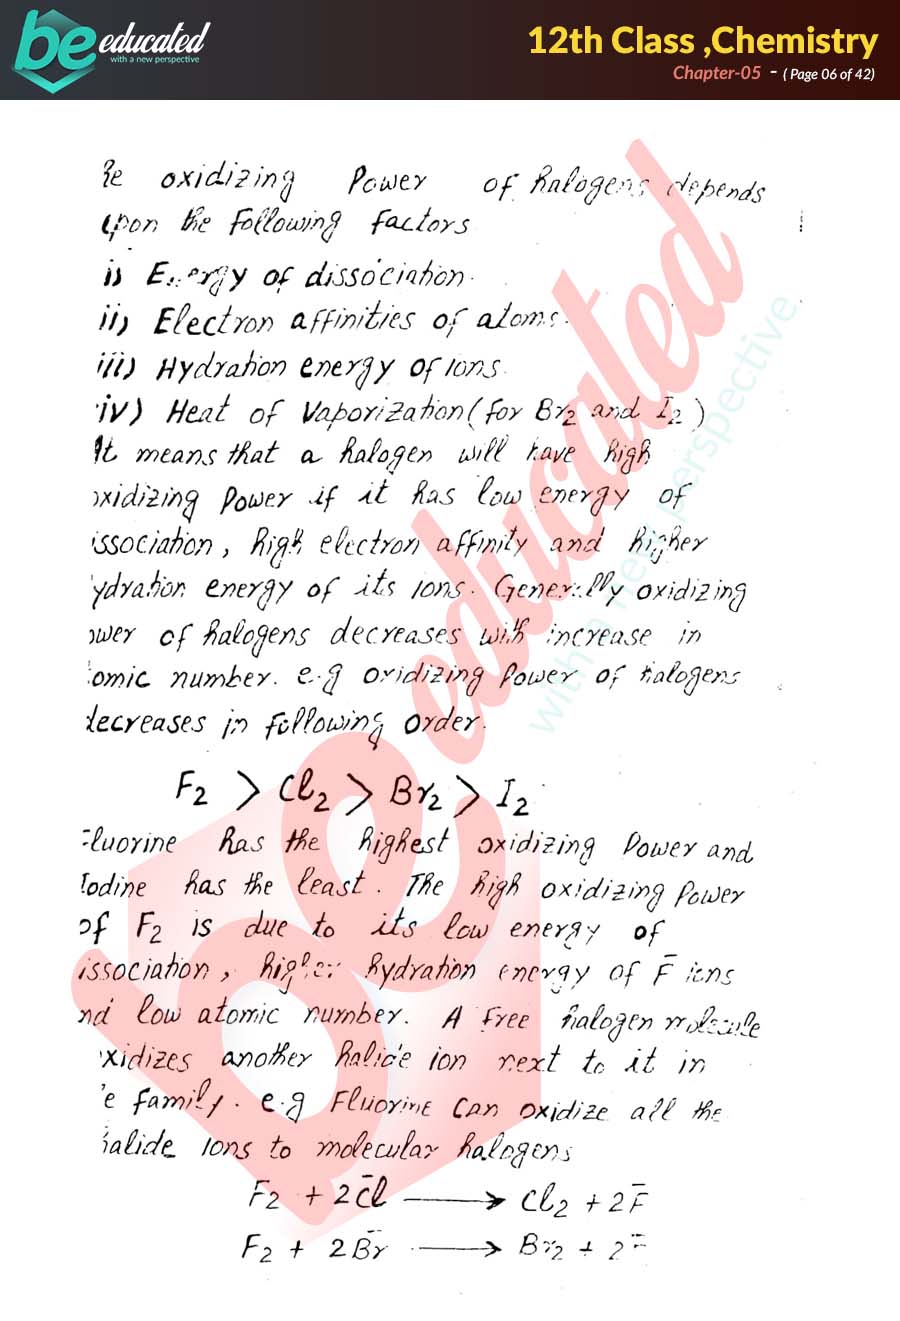 be educated
with a new perspective
12th Class ,Chemistry
Chapter-05 - ( Page 06 of 42)
he oxidizing Power of halogens depends
upon the following factors
i) Energy of dissociation.
ii) Electron affinities of atoms.
iii) Hydration energy of ions.
iv) Heat of Vaporization (for Br2 and I2)
It means that a halogen will have high
oxidizing Power if it has low energy of
issociation, high electron affinity and higher
ydration energy of its ions. Generally oxidizing
ower of halogens decreases with increase in
tomic number. e.g oxidizing Power of halogens
decreases in following order.
F2 > Cl2 > Br2 > I2
Fluorine has the highest oxidizing Power and
Iodine has the least. The high oxidizing Power
of F2 is due to its low energy of
issociation, higher hydration energy of F̄ ions
nd low atomic number. A free halogen molecule
oxidizes another halide ion next to it in
e family. e.g Fluorine can oxidize all the
halide ions to molecular halogens
F2 + 2C̄l ⟶ Cl2 + 2F̄
F2 + 2B̄r ⟶ Br2 + 2F̄
be educated
with a new perspective